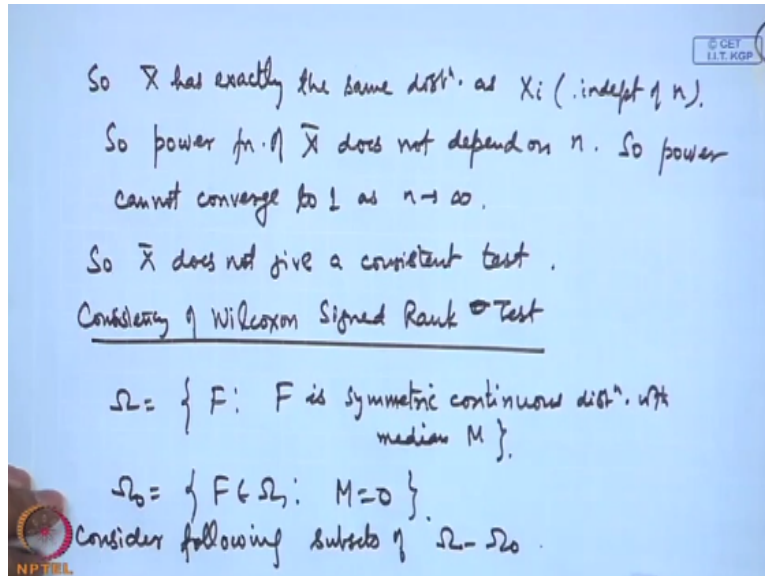 © CET
I.I.T. KGP
So X̄ has exactly the same distⁿ. as Xi (.indept of n).
So power fn. of X̄ does not depend on n. So power
cannot converge to 1 as n→∞.
So X̄ does not give a consistent test.
Consistency of Wilcoxon Signed Rank Test
Ω = { F: F is symmetric continuous distⁿ. with
median M }.
Ω₀ = { F ∈ Ω: M=0 }.
Consider following subsets of Ω - Ω₀.
NPTEL